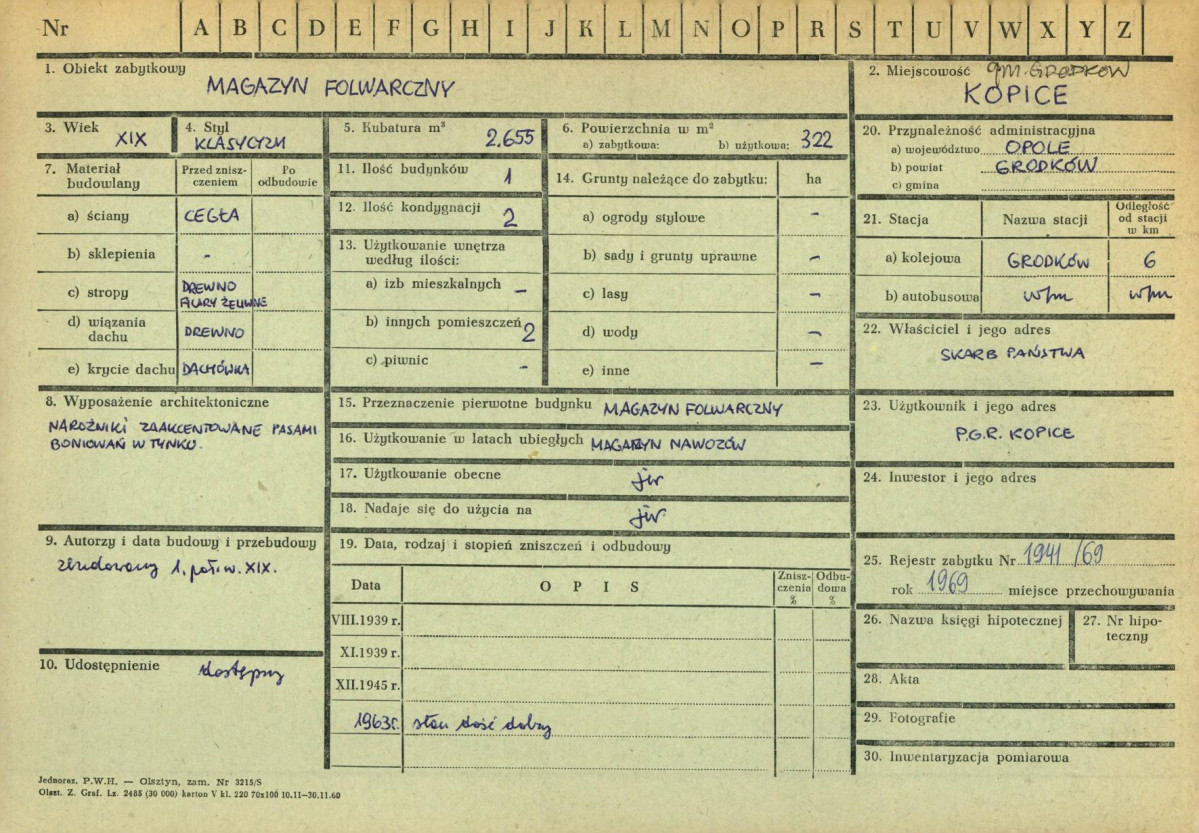 Nr A B C D E F G H I J K L M N O P R S T U V W X Y Z
1. Obiekt zabytkowy
MAGAZYN FOLWARCZNY
2. Miejscowość gm. GRODKÓW
KOPICE
3. Wiek
XIX
4. Styl
KLASYCYZM
5. Kubatura m³
2.655
6. Powierzchnia w m²
a) zabytkowa: b) użytkowa: 322
7. Materiał budowlany
Przed znisz-
czeniem
Po
odbudowie
a) ściany CEGŁA
b) sklepienia -
c) stropy DREWNO
FILARY ŻELIWNE
d) wiązania
dachu DREWNO
e) krycie dachu DACHÓWKA
8. Wyposażenie architektoniczne
NAROŻNIKI ZAAKCENTOWANE PASAMI
BONIOWAŃ W TYNKU.
9. Autorzy i data budowy i przebudowy
zbudowany 1. poł. w. XIX.
10. Udostępnienie dostępny
11. Ilość budynków 1
12. Ilość kondygnacji 2
13. Użytkowanie wnętrza
według ilości:
a) izb mieszkalnych -
b) innych pomieszczeń 2
c) piwnic -
14. Grunty należące do zabytku: ha
a) ogrody stylowe -
b) sady i grunty uprawne -
c) lasy -
d) wody -
e) inne -
15. Przeznaczenie pierwotne budynku MAGAZYN FOLWARCZNY
16. Użytkowanie w latach ubiegłych MAGAZYN NAWOZÓW
17. Użytkowanie obecne jw
18. Nadaje się do użycia na jw.
19. Data, rodzaj i stopień zniszczeń i odbudowy
Data O P I S Znisz-
czenia
% Odbu-
dowa
%
VIII.1939 r.
XI.1939 r.
XII.1945 r.
1963r. stan dość dobry
20. Przynależność administracyjna
a) województwo OPOLE
b) powiat GRODKÓW
c) gmina
21. Stacja Nazwa stacji Odległość
od stacji
w km
a) kolejowa GRODKÓW 6
b) autobusowa w/m w/m
22. Właściciel i jego adres
SKARB PAŃSTWA
23. Użytkownik i jego adres
P.G.R. KOPICE
24. Inwestor i jego adres
25. Rejestr zabytku Nr 1941/69
rok 1969 miejsce przechowywania
26. Nazwa księgi hipotecznej
27. Nr hipo-
teczny
28. Akta
29. Fotografie
30. Inwentaryzacja pomiarowa
Jednoraz. P.W.H. — Olsztyn, zam. Nr 3215/S
Olszt. Z. Graf. Lz. 2485 (30 000) karton V kl. 220 70x100 10.11—30.11.60